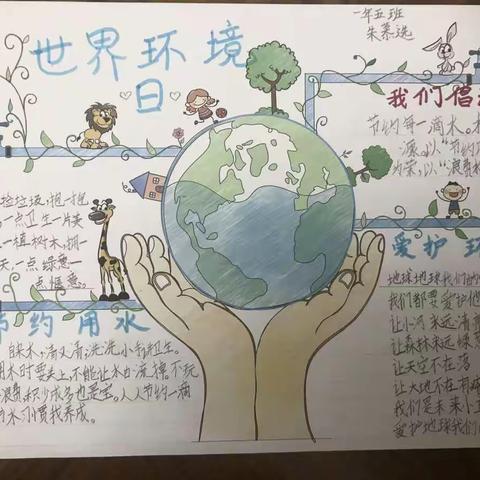 世界环境
日
一年五班
朱慕选
我们倡
节约每一滴水。
源。以“节约
为荣,以“浪费
捡垃圾,抱一抱
一点卫生一片美
一植树木,拥一
天,一点绿意一
点惬意。
节约用水
自来水,清又清,洗洗小手讲卫生。
用水时要关上,不能让水白流掉。不玩
浪费,积少成多也是宝。人人节约一滴
水,习惯我养成。
爱护环
地球地球我们的
我们都要爱护他
让小河永远清
让森林永远绿
让天空不在落
让大地不在有
我们是未来小
爱护地球我们